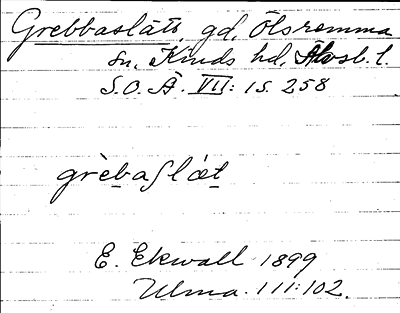 Grebbaslätt, gd, Ölsremma
sn, Kinds hd, Älvsb. l.
S.O.Ä. VII: 1 s. 258
grèbaʃlæ̀t
E. Ekwall 1899
Ulma. 111:102.